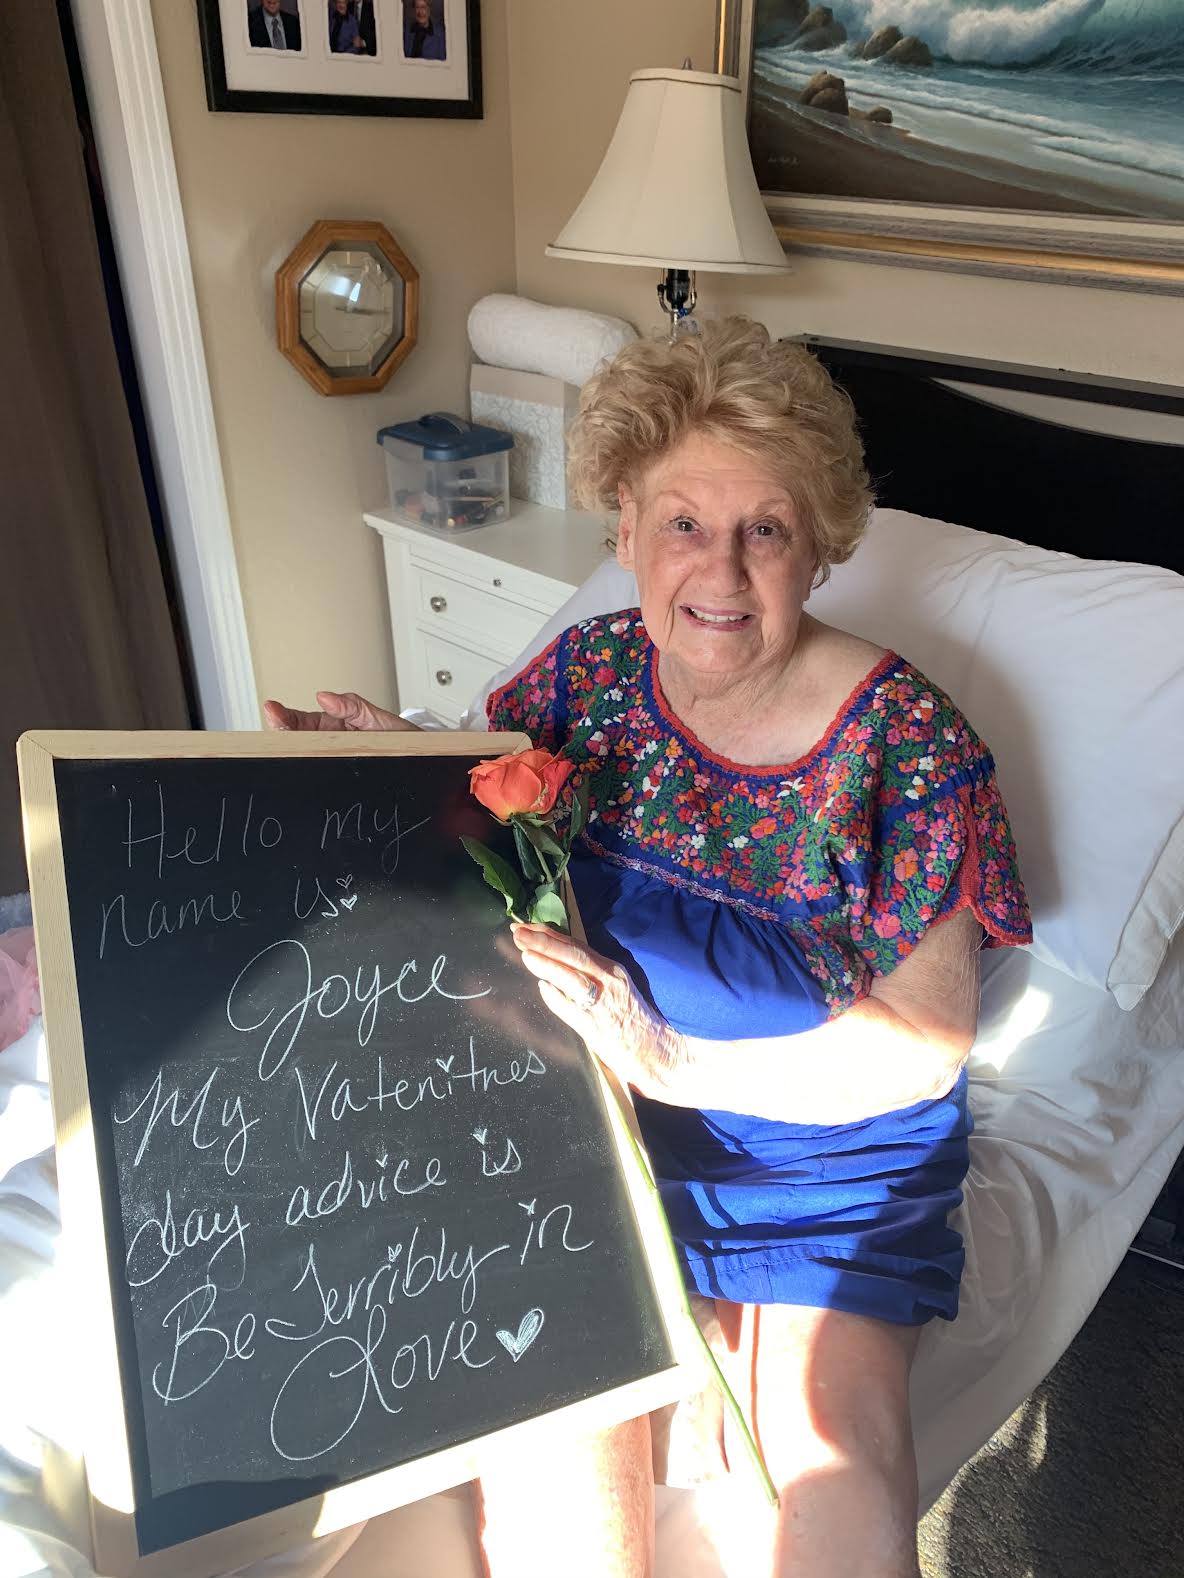 Hello my
name is:
Joyce
My Vatenitnes
day advice is
Be Terribly in
Love